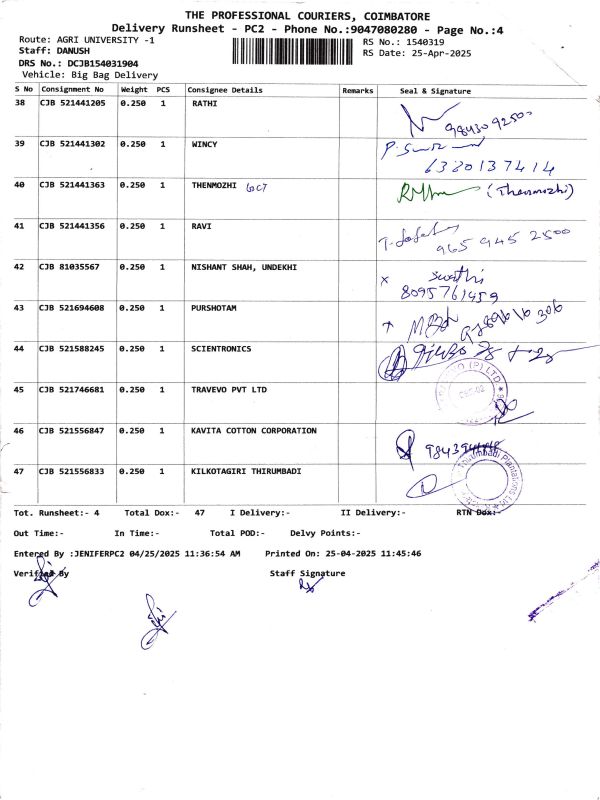 THE PROFESSIONAL COURIERS, COIMBATORE
Delivery Runsheet - PC2 - Phone No.:9047080280 - Page No.:4
Route: AGRI UNIVERSITY -1
RS No.: 1540319
Staff: DANUSH
RS Date: 25-Apr-2025
DRS No.: DCJB154031904
Vehicle: Big Bag Delivery
S No Consignment No Weight PCS Consignee Details Remarks Seal & Signature
38 CJB 521441205 0.250 1 RATHI
9843092500
39 CJB 521441302 0.250 1 WINCY
6380137414
40 CJB 521441363 0.250 1 THENMOZHI (Thenmozhi)
41 CJB 521441356 0.250 1 RAVI
965 945 2500
42 CJB 81035567 0.250 1 NISHANT SHAH, UNDEKHI
x Swathi
8095761459
43 CJB 521694608 0.250 1 PURSHOTAM
44 CJB 521588245 0.250 1 SCIENTRONICS
45 CJB 521746681 0.250 1 TRAVEVO PVT LTD
46 CJB 521556847 0.250 1 KAVITA COTTON CORPORATION
47 CJB 521556833 0.250 1 KILKOTAGIRI THIRUMBADI
Thirumbadi Plantations Ltd
Tot. Runsheet:- 4 Total Dox:- 47 I Delivery:- II Delivery:- RTN Dox:-
Out Time:- In Time:- Total POD:- Delvy Points:-
Entered By :JENIFERPC2 04/25/2025 11:36:54 AM Printed On: 25-04-2025 11:45:46
Verified By Staff Signature